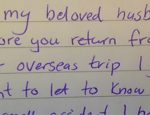 my beloved husb
ore you return fro
overseas trip I
nt to let to know
accident I h